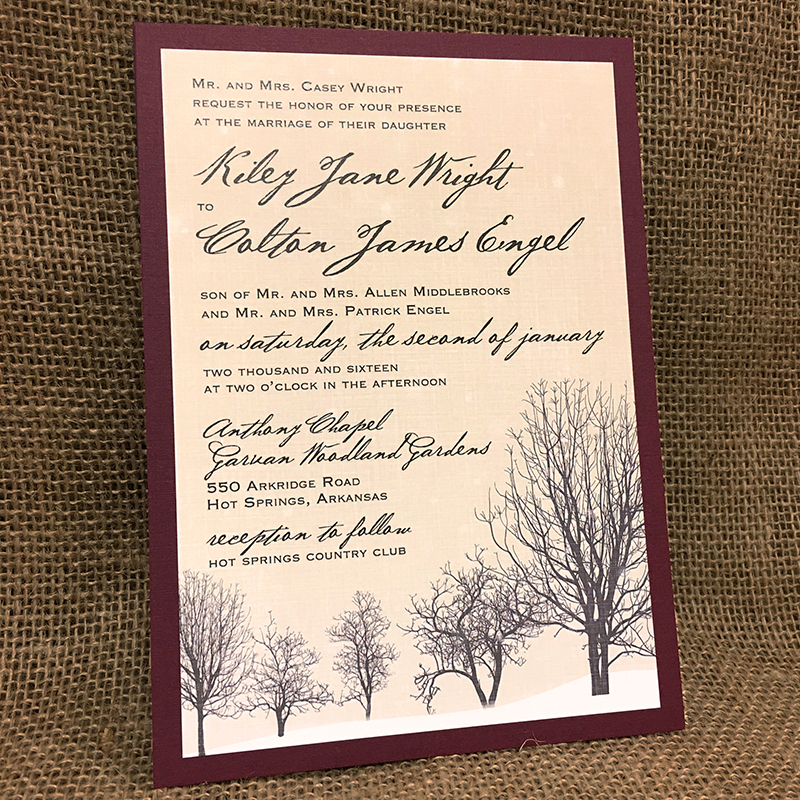 Mr. and Mrs. Casey Wright
request the honor of your presence
at the marriage of their daughter
Kiley Jane Wright
to
Colton James Engel
son of Mr. and Mrs. Allen Middlebrooks
and Mr. and Mrs. Patrick Engel
on saturday, the second of january
two thousand and sixteen
at two o'clock in the afternoon
Anthony Chapel
Garvan Woodland Gardens
550 Arkridge Road
Hot Springs, Arkansas
reception to follow
hot springs country club